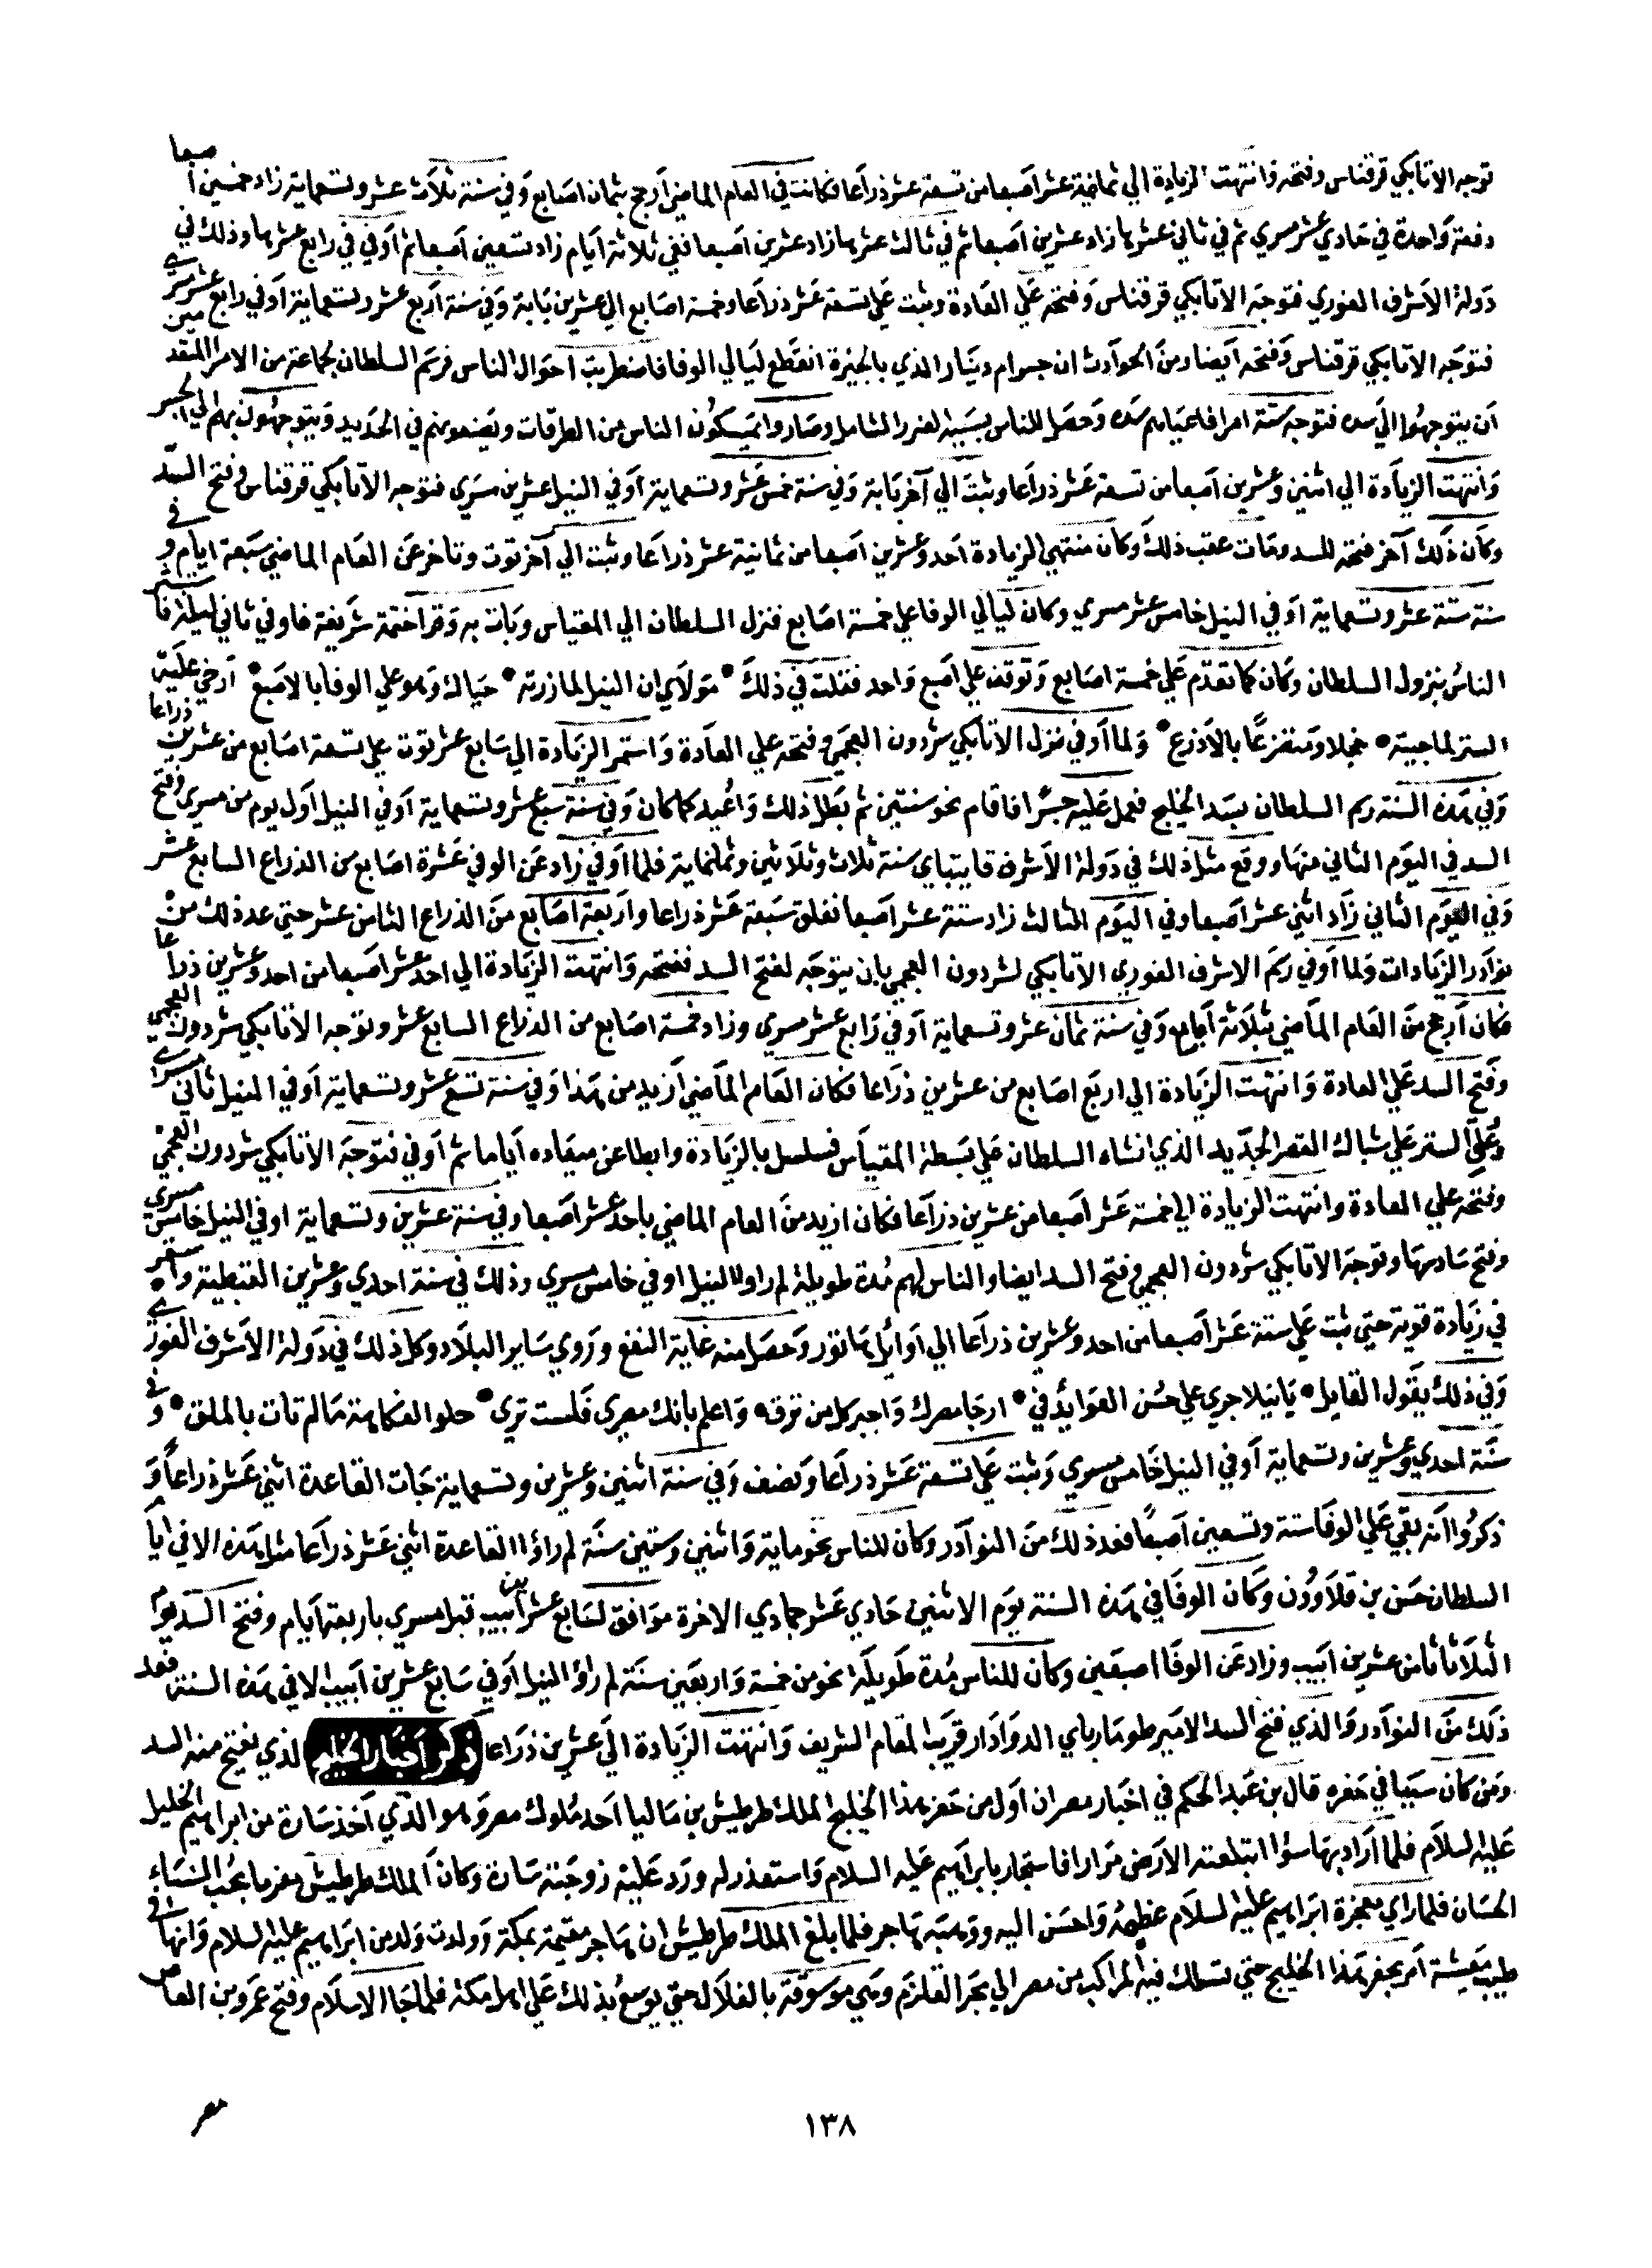 توجه الاتابكي قرقناس وفتحه وانتهت الزيادة الي ثمانية عشر اصبعا من تسعة عشر ذراعا فكانت في العام الماضي ارجح بثمان اصابع وفي سنة ثلاث عشر وتسعماية زاد خمسين اصبعا
دفعة واحدة في حادي عشر مسري ثم في ثاني عشرها زاد عشرين اصبعا ثم في ثالث عشرها زاد عشرين اصبعا ففي ثلاثة ايام زاد تسعين اصبعا ثم اوفي في رابع عشرها وذلك في
دولة الاشرف الغوري فتوجه الاتابكي قرقناس وفتحه علي العادة وثبت علي تسعة عشر ذراعا وخمسة اصابع الي عشرين بابة وفي سنة اربع عشر وتسعماية اوفي رابع عشر مسري
فتوجه الاتابكي قرقناس وفتحه ايضا ومن الحوادث ان جسر ام دينار الذي بالجيزة انقطع ليالي الوفا فاضطربت احوال الناس فرسم السلطان لجماعة من الامرا المقدمين
ان يتوجهوا الي سده فتوجه ستة امرا فاعياهم سده وحصل للناس بسببه الضرر الشامل وصاروا يمسكون الناس من الطرقات ويضعونهم في الحديد ويتوجهون بهم الي الجسر
وانتهت الزيادة الي اثنين وعشرين اصبعا من تسعة عشر ذراعا وثبت الي آخر بابة وفي سنة خمس عشر وتسعماية اوفي النيل عشرين مسري فتوجه الاتابكي قرقناس وفتح السد
وكان ذلك آخر فتحه للسد ومات عقب ذلك وكان منتهي الزيادة احد وعشرين اصبعا من ثمانية عشر ذراعا وثبت الي آخر توت وتاخر عن العام الماضي سبعة ايام وفي
سنة ستة عشر وتسعماية اوفي النيل خامس عشر مسري وكان ليالي الوفا علي خمسة اصابع فنزل السلطان الي المقياس وبات به وقرا ختمة شريفة فاوفي ثاني ليلة
الناس بنزول السلطان وكان كما تقدم علي خمسة اصابع وتوقف علي اصبع واحد فقلت في ذلك * مولاي ان النيل لما زرته * حياك وهو علي الوفا بالاصبع * ارخي عليه
الستر لما جيته * خجلا ومتضرعا بالاذرع * ولما اوفي نزل الاتابكي سودون العجمي وفتحه علي العادة واستمر الزيادة الي سابع عشر توت علي تسعة اصابع من عشرين ذراعا
وفي هذه السنة رسم السلطان بسد الخليج فعمل عليه جسرا فاقام نحو سنتين ثم بطل ذلك واعيد كما كان وفي سنة سبع عشر وتسعماية اوفي النيل اول يوم من مسري وفتح
السد في اليوم الثاني منها ووقع مثل ذلك في دولة الاشرف قايتباي سنة ثلاث وثلاثين وثمانماية فلما اوفي زاد عن الوفي عشرة اصابع من الذراع السابع عشر
وفي اليوم الثاني زاد اثني عشر اصبعا وفي اليوم الثالث زاد ستة عشر اصبعا نغلق سبعة عشر ذراعا واربعة اصابع من الذراع الثامن عشر حتي عد ذلك من
نوادر الزيادات ولما اوفي رسم الاشرف الغوري الاتابكي لسودون العجمي بان يتوجه لفتح السد ففتحه وانتهت الزيادة الي احد عشر اصبعا من احد وعشرين ذراعا
فكان ارجح من العام الماضي بثلاثة اصابع وفي سنة ثمان عشر وتسعماية اوفي رابع عشر مسري وزاد خمسة اصابع من الذراع السابع عشر وتوجه الاتابكي سودون العجمي
وفتح السد علي العادة وانتهت الزيادة الي اربع اصابع من عشرين ذراعا فكان العام الماضي ازيد من هذا وفي سنة تسع عشر وتسعماية اوفي النيل ثاني
الستر علي شباك القصر الجديد الذي انشاه السلطان علي بسطة المقياس فسلسل بالزيادة وابطا عن ميعاده اياما ثم اوفي فتوجه الاتابكي سودون العجمي
وفتحه علي العادة وانتهت الزيادة الي خمسة عشر اصبعا من عشرين ذراعا فكان ازيد من العام الماضي باحد عشر اصبعا وفي سنة عشرين وتسعماية اوفي النيل خامس مسري
وفتح سادسها وتوجه الاتابكي سودون العجمي وفتح السد ايضا والناس لهم مدة طويلة لم راوا النيل اوفي خامس مسري وذلك في سنة احدي وعشرين القبطية واستمر
في زيادة قوية حتي ثبت علي ستة عشر اصبعا من احد وعشرين ذراعا الي اوائل هاتور وحصل منه غاية النفع وروي ساير البلاد وكل ذلك في دولة الاشرف الغوري
وفي ذلك يقول القايل * يا نيل اجري علي حسن العوائد في * ارجا مصرك واجبر كل من ترقه * واعلم بانك مصري فلست تري * حلو الفكاهة ما لم تات بالملق * وفي
سنة احدي وعشرين وتسعماية اوفي النيل خامس مسري وثبت علي تسعة عشر ذراعا ونصف وفي سنة اثنين وعشرين وتسعماية جات القاعدة اثني عشر ذراعا و
ذكروا انه بقي علي الوفا ستة وتسعين اصبعا فعد ذلك من النوادر وكان للناس نحو ماية واثنين وستين سنة لم راوا القاعدة اثني عشر ذراعا مثل هذه الا في ايام
السلطان حسن بن قلاوون وكان الوفا في هذه السنة يوم الاثنين حادي عشر جمادي الاخرة موافق لسابع عشرين ابيب قبل مسري باربعة ايام وفتح السد يوم
الثلاثا ثامن عشرين ابيب وزاد عن الوفا اصبعين وكان للناس مدة طويلة نحو من خمسة واربعين سنة لم راوا النيل اوفي سابع عشرين ابيب الا في هذه السنة فعد
ذلك من النوادر والذي فتح السد الامير طومارباي الدوادار قريب المقام الشريف وانتهت الزيادة الي عشرين ذراعا ذكر اخبار الخليج الذي يفتح منه السد
ومن كان سببا في حفره قال بن عبد الحكم في اخبار مصر ان اول من حفر هذا الخليج الملك طرطيش بن ماليا احد ملوك مصر وهو الذي اخذ سارة من ابراهيم الخليل
عليه السلام فلما اراد بها سؤا ابتلعته الارض مرارا فاستجار بابراهيم عليه السلام واستعذر له ورد عليه زوجته سارة وكان الملك طرطيش مغرما بحب النساء
الحسان فلما راي معجزة ابراهيم عليه السلام عظمه واحسن اليه ووهبه هاجر فلما بلغ الملك طرطيش ان هاجر مقيمة بمكة وولدت ولد من ابراهيم عليه السلام وانها في
طيب معيشة امر بحفر هذا الخليج حتي تسلك فيه المراكب من مصر الي بحر القلزم وهي موسوقة بالغلال حتي يوسع بذلك علي اهل مكة فلما جا الاسلام وفتح عمرو بن العاص
مصر
١٣٨